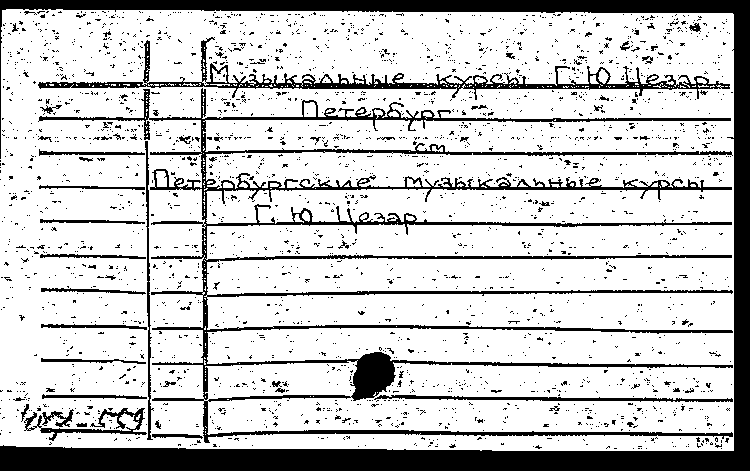 Музыкальные курсы Г. Ю. Цезар.
Петербург.
см
Петербургские музыкальные курсы
Г. Ю. Цезар.